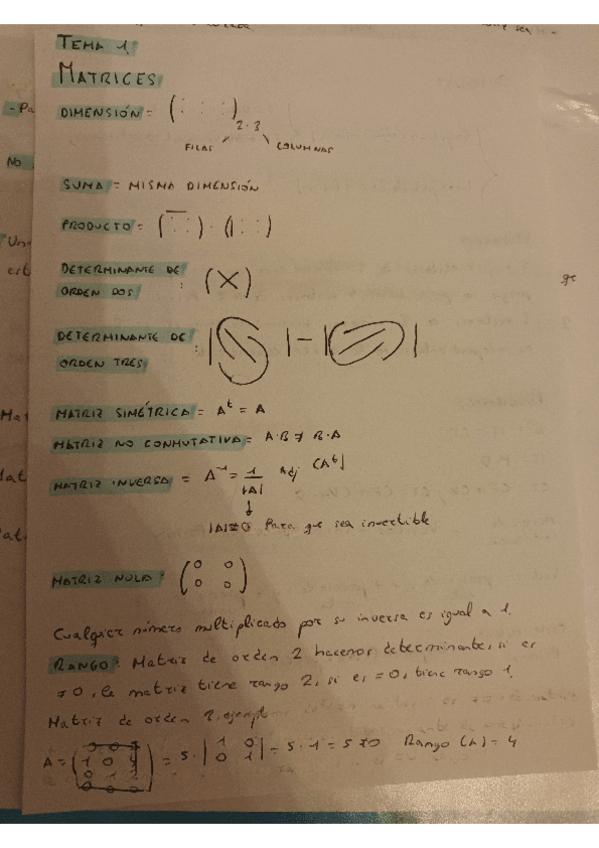 TEMA 1.
MATRICES
DIMENSIÓN = ( : : : ) 2·3
FILAS COLUMNAS
SUMA = MISMA DIMENSIÓN
PRODUCTO =
DETERMINANTE DE
ORDEN DOS :
DETERMINANTE DE
ORDEN TRES :
MATRIZ SIMÉTRICA = Aᵗ = A
MATRIZ NO CONMUTATIVA = A·B ≠ B·A
MATRIZ INVERSA = A⁻¹ = 1/|A| Adj (Aᵗ)
|A| ≠ 0 Para que sea invertible
MATRIZ NULA: (0 0
0 0)
Cualquier número multiplicado por su inversa es igual a 1.
RANGO: Matriz de orden 2 hacemos determinante, si es
≠0, la matriz tiene rango 2, si es =0, tiene rango 1.
Matriz de orden
A = = 5· |1 0
0 1| = 5·1 = 5 ≠0 Rango (A) = 4